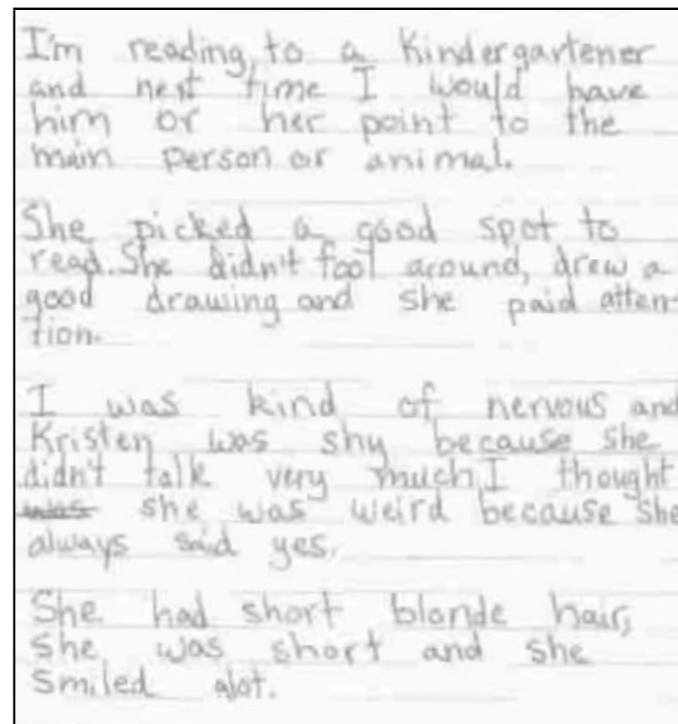 I'm reading to a Kindergartener
and next time I would have
him or her point to the
main person or animal.
She picked a good spot to
read. She didn't fool around, drew a
good drawing and she paid atten-
tion.
I was kind of nervous and
Kristen was shy because she
didn't talk very much, I thought
was she was weird because she
always said yes.
She had short blonde hair,
she was short and she
smiled alot.